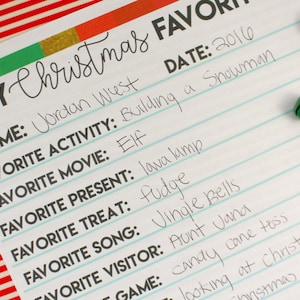 Y Christmas FAVORIT
ME: Jordan West DATE: 2016
ORITE ACTIVITY: Building a Snowman
VORITE MOVIE: Elf
AVORITE PRESENT: lava lamp
FAVORITE TREAT: fudge
FAVORITE SONG: Jingle Bells
FAVORITE VISITOR: Aunt Jana
E GAME: candy cane toss
looking at Christ
hristmas